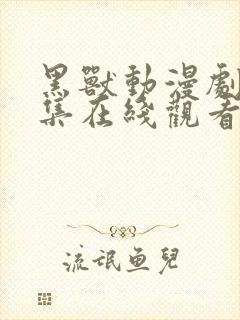 黑獸動漫劇
集在綫觀看
流氓魚兒